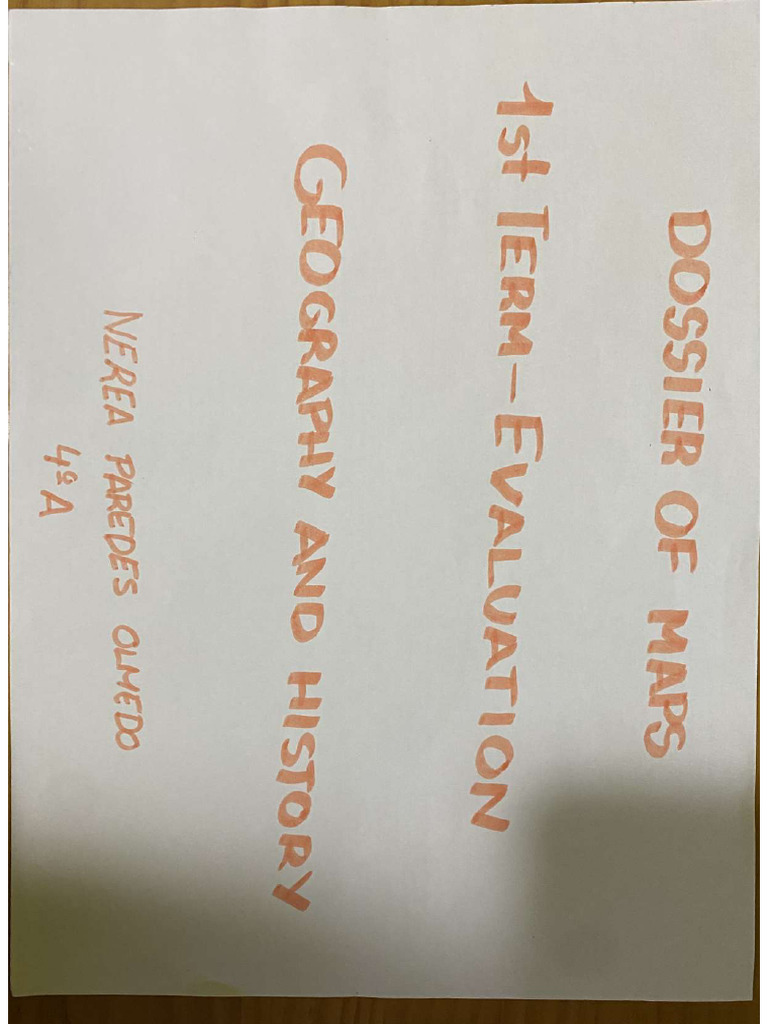 DOSSIER OF MAPS
1st TERM-EVALUATION
GEOGRAPHY AND HISTORY
NEREA PAREDES OLMEDO
4ºA